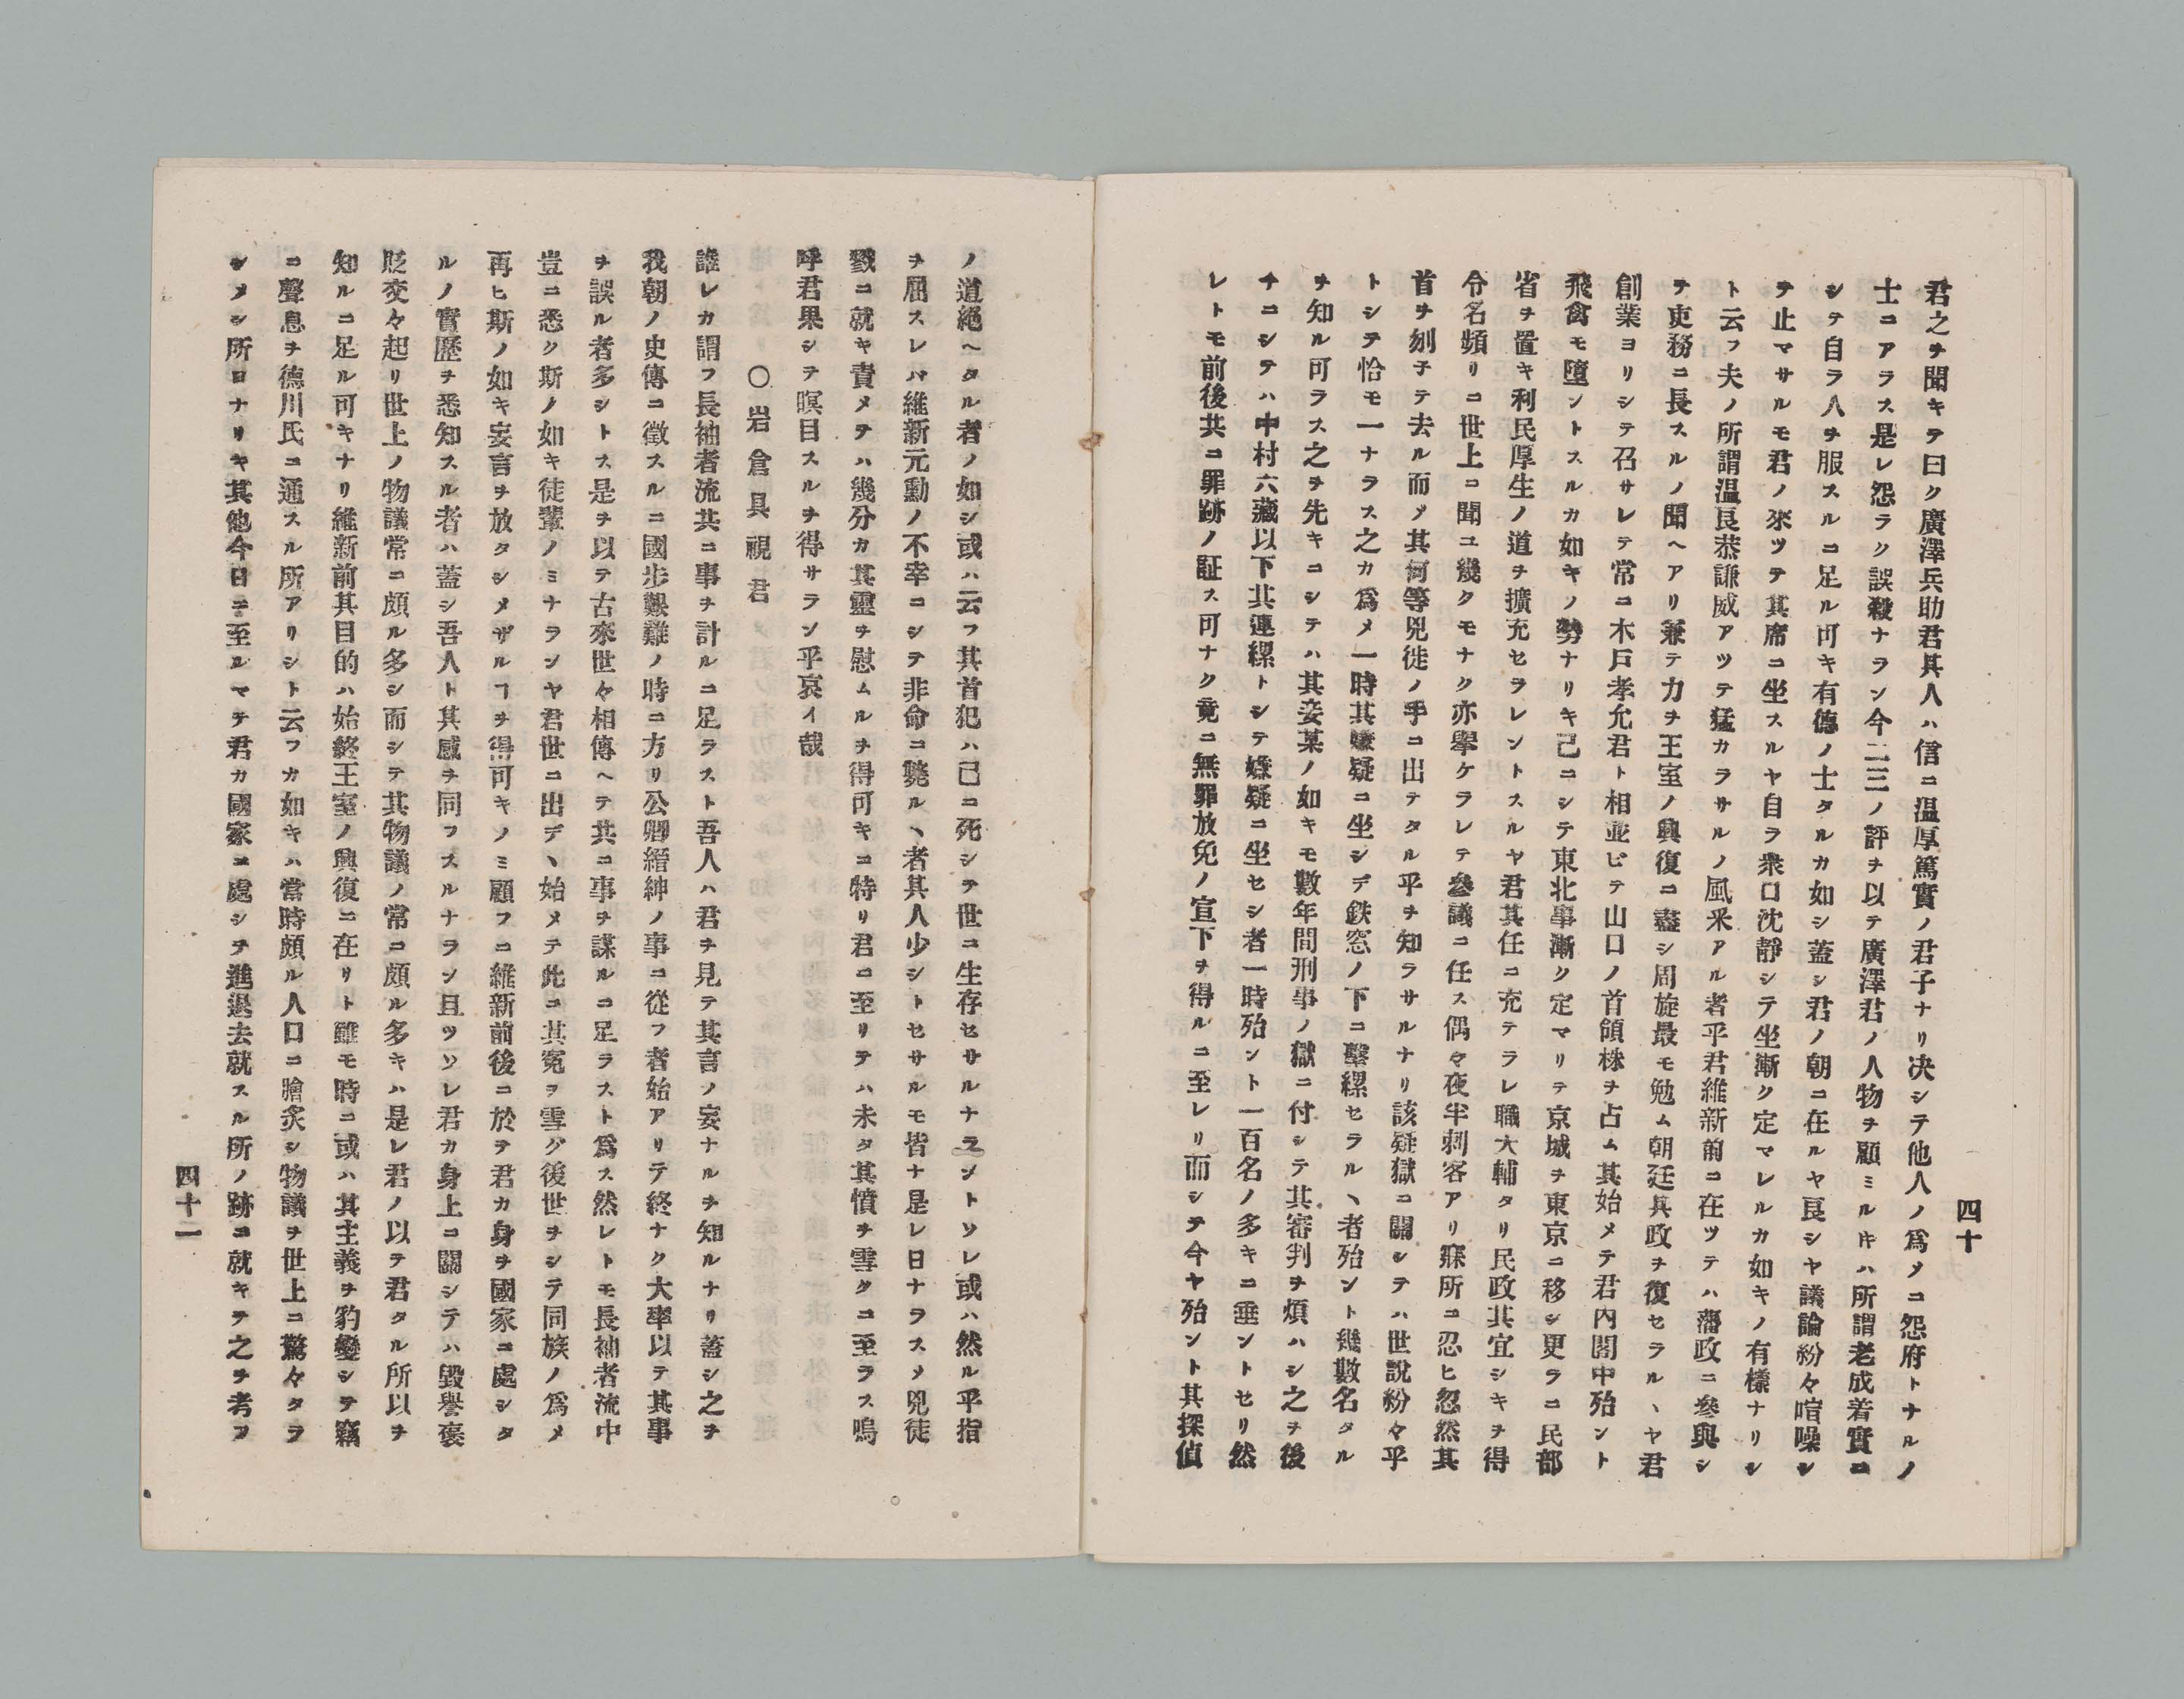 四十
君之ヲ聞キテ曰ク廣澤兵助君其人ハ信ニ温厚篤實ノ君子ナリ决シテ他人ノ爲メニ怨府トナルノ
士ニアラス是レ恐ラク誤殺ナラン今二三ノ評ヲ以テ廣澤君ノ人物ヲ顧ミルㇳキハ所謂老成着實ニ
シテ自ラ人ヲ服スルニ足ル可キ有德ノ士タルカ如シ蓋シ君ノ朝ニ在ルヤ良シヤ議論紛々喧噪シ
テ止マサルモ君ノ來ツテ其席ニ坐スルヤ自ラ衆口沈靜シテ坐漸ク定マレルカ如キノ有樣ナリシ
ト云フ夫ノ所謂温良恭謙威アツテ猛カラサルノ風釆アル者乎君維新前ニ在ツテハ藩政ニ參與シ
テ吏務ニ長スルノ聞ヘアリ兼テ力ヲ王室ノ興復ニ盡シ周旋最モ勉ム朝廷其政ヲ復セラルヽヤ君
創業ヨリシテ召サレテ常ニ木戸孝允君ト相並ビテ山口ノ首領株ヲ占ム其始メテ君内閣中殆ント
飛禽モ墮ントスルカ如キノ勢ナリキ己ニシテ東北事漸ク定マリテ京城ヲ東京ニ移シ更ラニ民部
省ヲ置キ利民厚生ノ道ヲ擴充セラレントスルヤ君其任ニ充テラレ職大輔タリ民政其宜シキヲ得
令名頻リニ世上ニ聞ユ幾クモナク亦擧ケラレテ參議ニ任ス偶々夜半刺客アリ寐所ニ忍ヒ忽然其
首ヲ刎子テ去ル而メ其何等兇徒ノ手ニ出テタル乎ヲ知ラサルナリ該疑獄ニ關シテハ世説紛々乎
トシテ恰モ一ナラス之カ爲メ一時其嫌疑ニ坐シテ鉄窓ノ下ニ繫縲セラルヽ者殆ント幾數名タル
ヲ知ル可ラス之ヲ先キニシテハ其妾某ノ如キモ數年間刑事ノ獄ニ付シテ其審判ヲ煩ハシ之ヲ後
チニシテハ中村六藏以下其連縲トシテ嫌疑ニ坐セシ者一時殆ント一百名ノ多キニ垂ントセリ然
レトモ前後共ニ罪跡ノ証ス可ナク竟ニ無罪放免ノ宣下ヲ得ルニ至レリ而シテ今ヤ殆ント其探偵
ノ道絕ヘタル者ノ如シ或ハ云フ其首犯ハ己ニ死シテ世ニ生存セサルナラントソレ或ハ然ル乎指
ヲ屈スレハ維新元勳ノ不幸ニシテ非命ニ斃ルヽ者其人少シトセサルモ皆ナ是レ日ナラスメ兇徒
戮ニ就キ責メテハ幾分カ其靈ヲ慰ムルヲ得可キニ特リ君ニ至リテハ未タ其憤ヲ雪クニ至ラス嗚
呼君果シテ瞑目スルヲ得サラン乎哀イ哉
〇岩倉具視君
誰レカ謂フ長袖者流其ニ事ヲ計ルニ足ラスト吾人ハ君ヲ見テ其言ノ妄ナルヲ知ルナリ蓋シ之ヲ
我朝ノ史傳ニ徵スルニ國步艱難ノ時ニ方リ公卿縉紳ノ事ニ從フ者始アリテ終ナク大率以テ其事
ヲ誤ル者多シトス是ヲ以テ古來世々相傳ヘテ共ニ事ヲ謀ルニ足ラスト爲ス然レトモ長袖者流中
豈ニ悉ク斯ノ如キ徒輩ノミナランヤ君世ニ出デヽ始メテ此ニ其寃ヲ雪ク後世ヲシテ同族ノ爲メ
再ヒ斯ノ如キ妄言ヲ放タシメザルヿヲ得可キノミ顧フニ維新前後ニ於テ君カ身ヲ國家ニ處シタ
ルノ實歷ヲ悉知スル者ハ蓋シ吾人ト其感ヲ同フスルナラン且ツソレ君カ身上ニ關シテハ毀譽褒
貶交々起リ世上ノ物議常ニ頗ル多シ而シテ其物議ノ常ニ頗ル多キハ是レ君ノ以テ君タル所以ヲ
知ルニ足ル可キナリ維新前其目的ハ始終王室ノ興復ニ在リト雖モ時ニ或ハ其主義ヲ豹變シテ竊
ニ聲息ヲ德川氏ニ通スル所アリシト云フカ如キハ當時頗ル人口ニ膾炙シ物議ヲ世上ニ驚々タラ
シメシ所ロナリキ其他今日ニ至ルマテ君カ國家ニ處シテ進退去就スル所ノ跡ニ就キテ之ヲ考フ
四十一